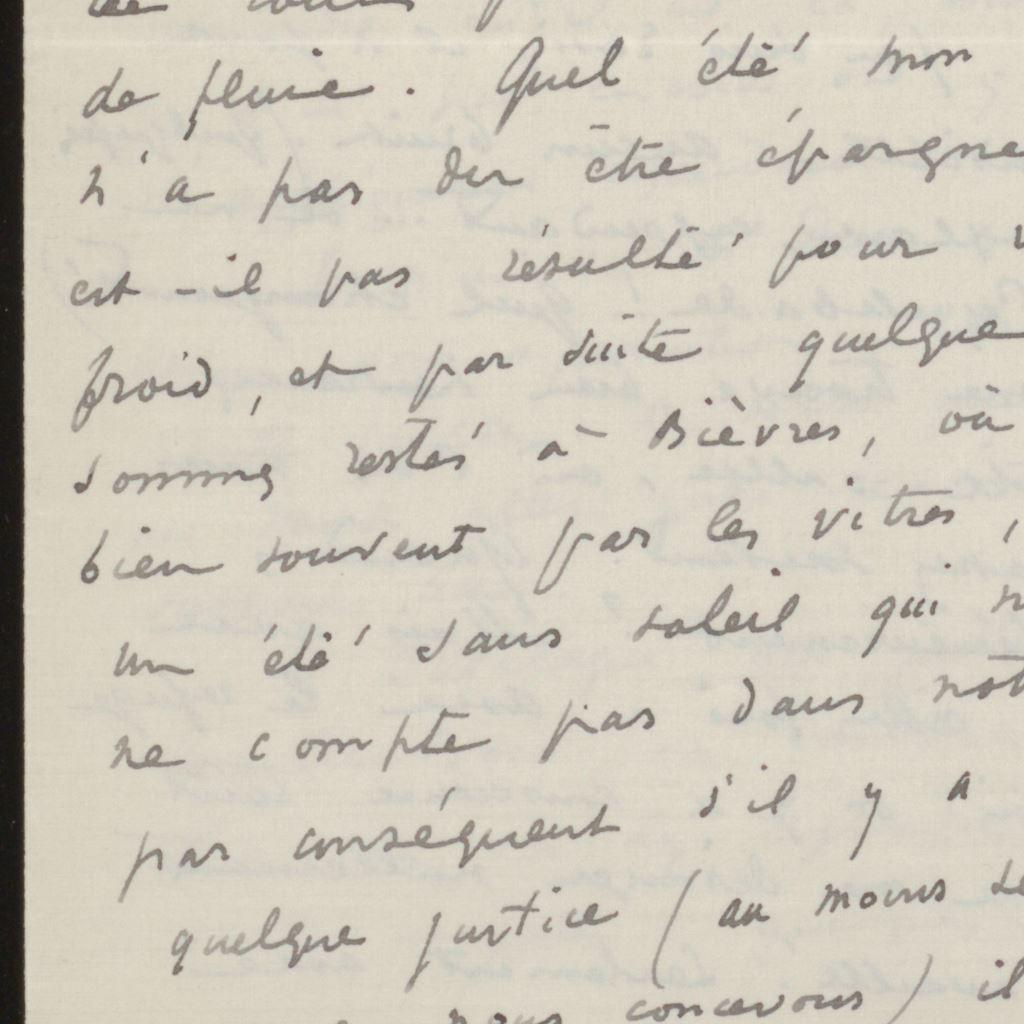 de pluie. Quel été mon
n'a pas du être épargné
est-il pas résulté pour
froid, et par suite quelque
sommes restés à Bièvres, où
bien souvent par les vitres,
un été sans soleil qui n
ne compte pas dans not
par conséquent s'il y a
quelque justice (au moins
nous concevous) il